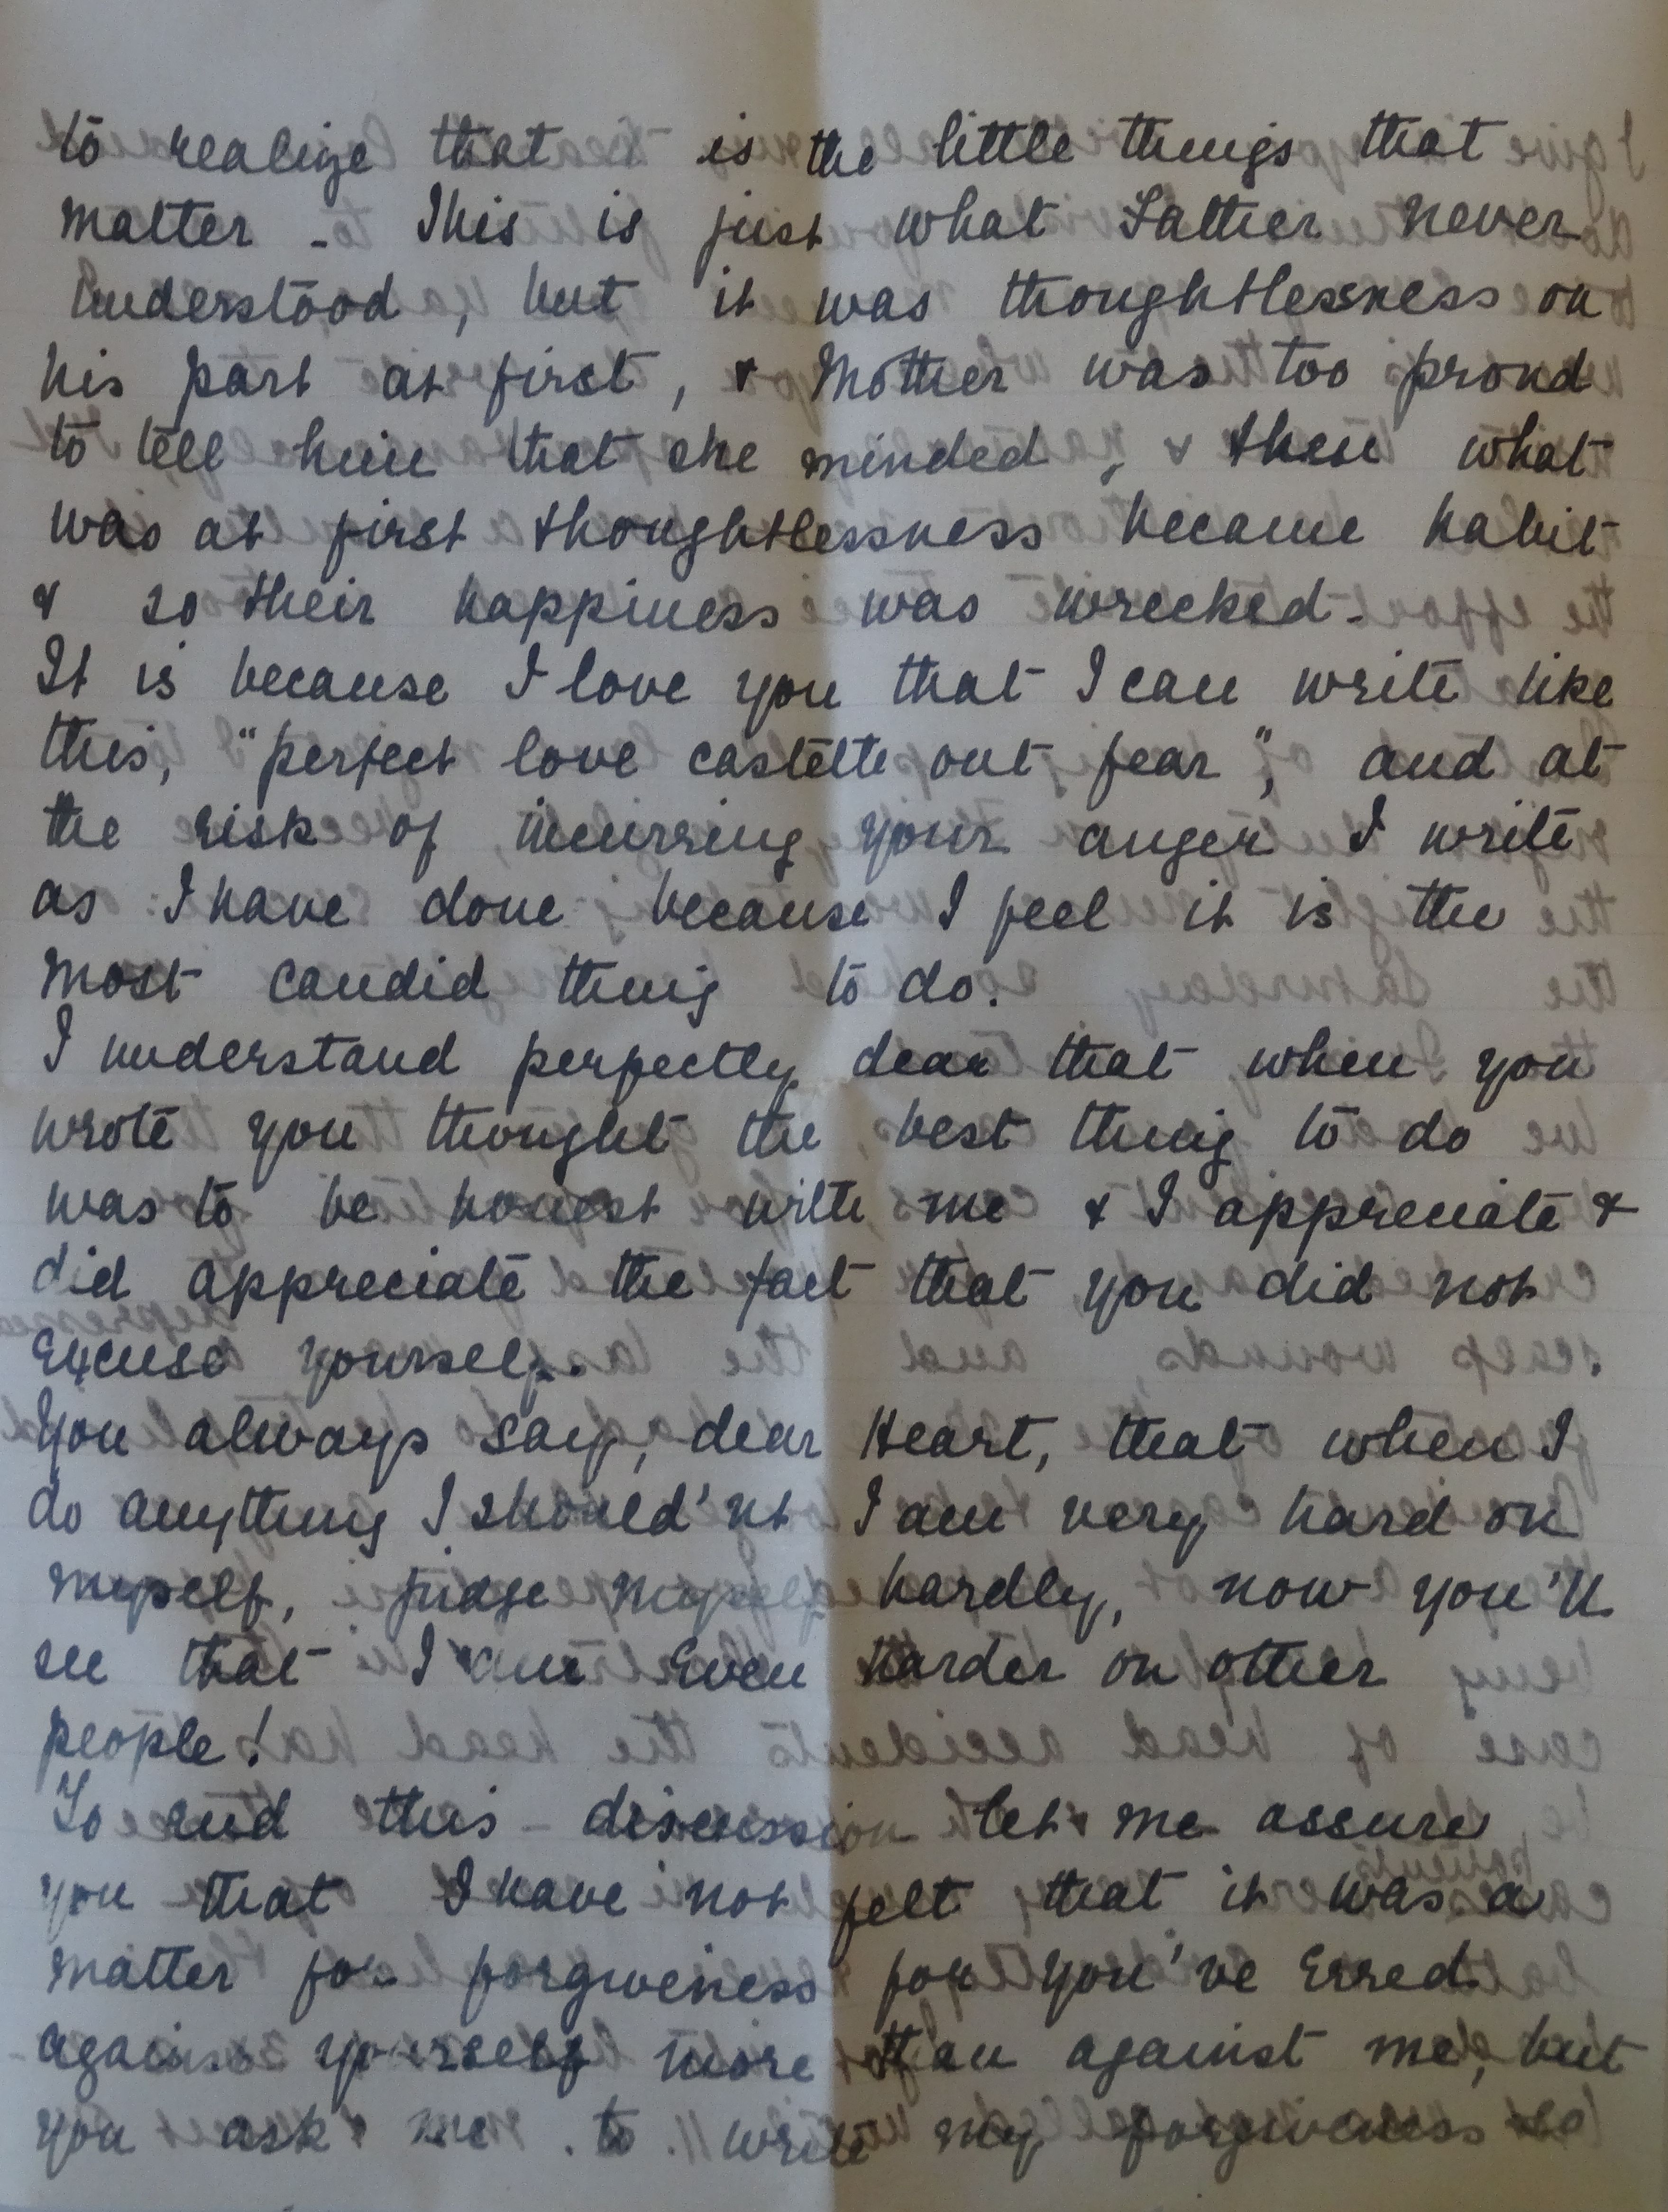 to realize that is the little things that
matter - This is just what Father never
understood, but it was thoughtlessness on
his part at first, & Mother was too proud
to tell him that she minded, & then what
was at first thoughtlessness became habit
& so their happiness was wrecked.
It is because I love you that I can write like
this, "perfect love casteth out fear", and at
the risk of incurring your anger I write
as I have done because I feel it is the
most candid thing to do.
I understand perfectly dear that when you
wrote you thought the best thing to do
was to be honest with me & I appreciate &
did appreciate the fact that you did not
excuse yourself.
You always say, dear Heart, that when I
do anything I should'nt I am very hard on
myself, judge myself hardly, now you'll
see that I am even harder on other
people!
To end this discussion let me assure
you that I have not felt that it was a
matter for forgiveness for you've erred
against yourself more than against me, but
you ask me to write my forgiveness so